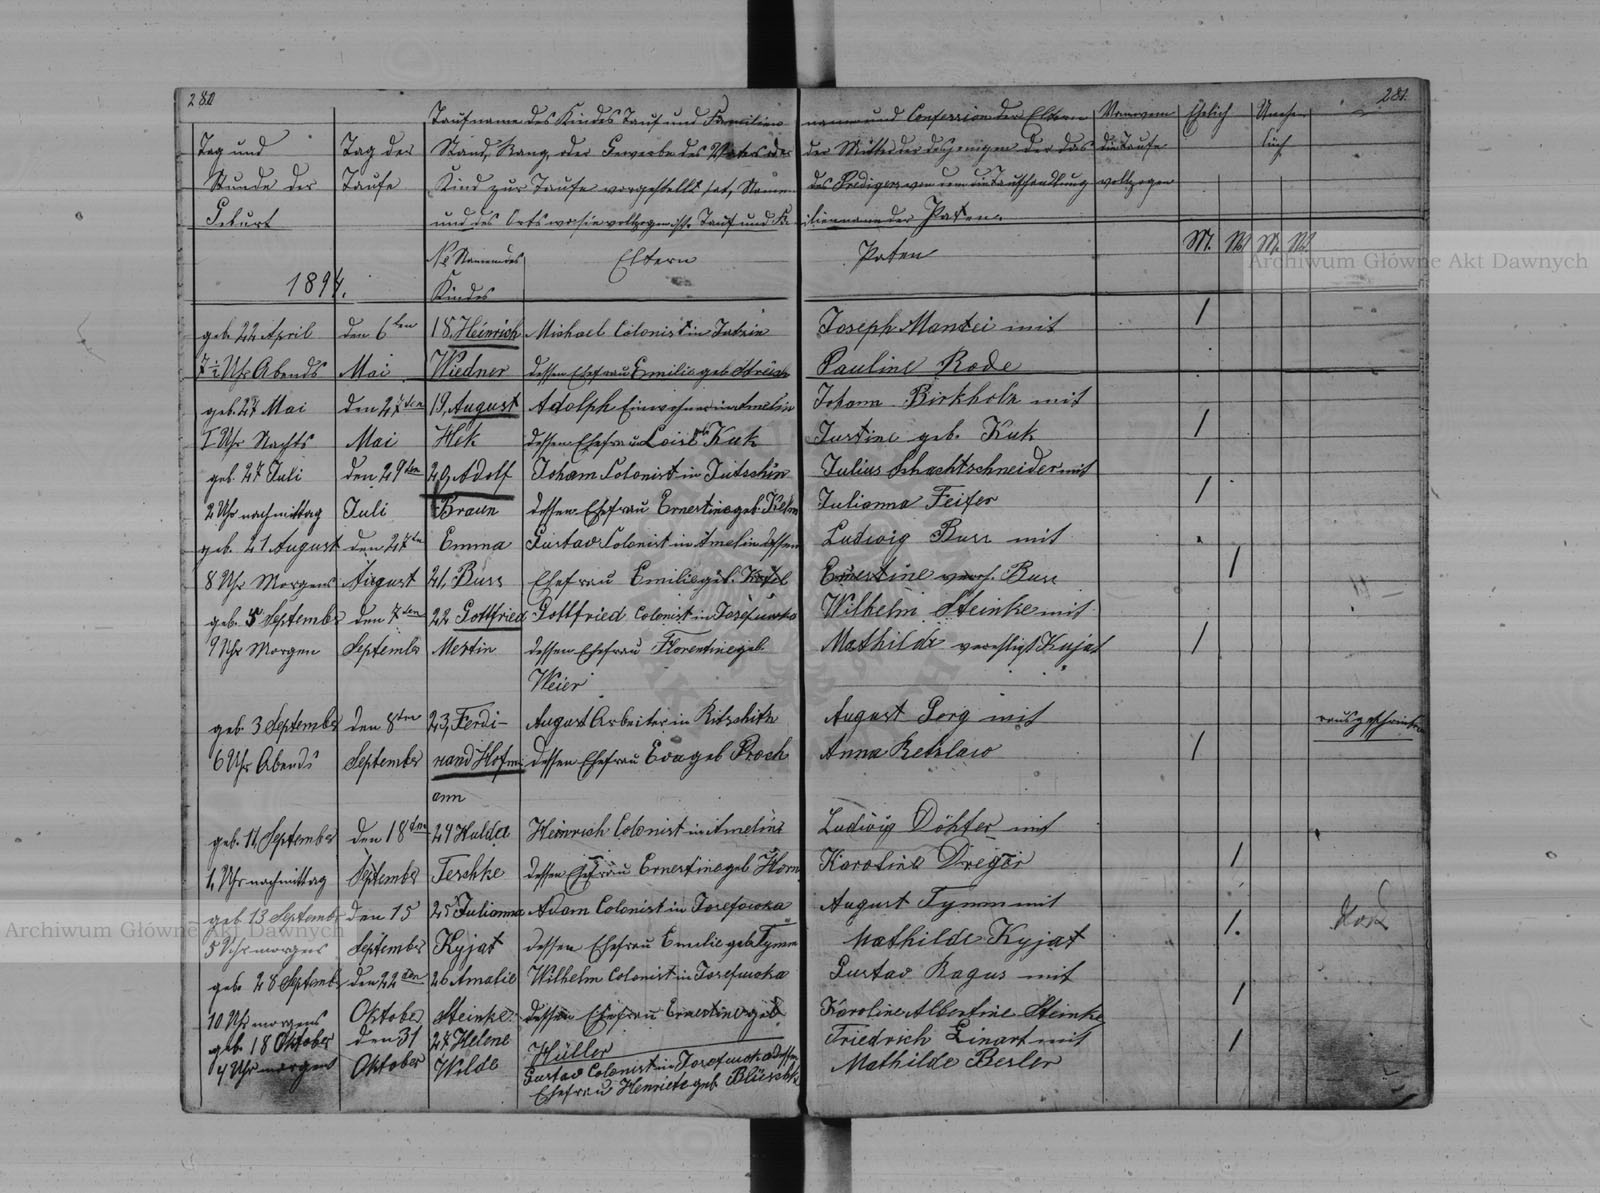 280
281.
Taufname des Kindes Tauf und Familien
name und Confession der Eltern
Ehelich
Tag und
Tag der
Stand, Rang oder Gewerbe des Vaters oder
der Mutter oder desjenigen der das
die Taufe
Stunde der
Taufe
Kind zur Taufe vorgestellt hat, Namen
des Predigers von dem die Taufhandlung
vollzogen
Geburt
und des Orts wo sie vollzogen ist. Tauf und Fa
milienname der Paten.
M. W. M. W.
No Namen des
Eltern
Paten
1894.
Kindes
geb. 22 April
den 6ten
18. Heinrich
Michael Colonist in
Joseph Mantei mit
Uhr Abends
Mai
Wiedner
dessen Ehefrau Emilie geb.
Pauline Rode
geb. 27 Mai
den 27ten
19, August
Adolph Einwohner in Amelin
Johann Birkholz mit
1 Uhr Nachts
Mai
Hek
dessen Ehefrau Loise geb. Kuk
Justine geb. Kuk
geb. 27 Juli
den 29ten
20, Adolf
Johann Colonist in Jutschin
Julius Schachtschneider mit
2 Uhr nachmittag
Juli
Braun
dessen Ehefrau Ernestine geb.
Julianna Feifer
geb. 21 August
den 27ten
Emma
Gustav Colonist in Amelin dessen
Ludwig Buss mit
8 Uhr Morgens
August
21, Buss
Ehefrau Emilie geb.
Ernestine Buss
geb. 5 September
den 7ten
22 Gottfried
Gottfried Colonist in
Wilhelm Steinke mit
9 Uhr Morgen
September
Mertin
dessen Ehefrau Florentine geb.
Mathilde verehligt Kujat
Weier
geb. 3 September
den 8ten
23, Ferdi-
August Arbeiter in Kitschitz
August Gorg mit
6 Uhr Abends
September
nand Hofm
dessen Ehefrau Eva geb Proch
Anna Retzlaw
ann
geb. 11, September
den 18ten
24 Hulda
Heinrich Colonist in Amelin
Ludwig Döhfer mit
1, Uhr nachmittag
September
Teschke
dessen Ehefrau Ernestine geb Horn
Karoline Dreger
geb 13 September
den 15
25 Julianna
Adam Colonist in Josefowka
August Tymm mit
5 Uhr morgens
September
Kyjat
dessen Ehefrau Emilie geb Tymm
Mathilde Kyjat
geb. 28 September
den 22ten
26 Amalie
Wilhelm Colonist in Josefowka
Gustav Ragus mit
10 Uhr morgens
Oktober
Steinke
dessen Ehefrau Ernestine geb.
Karoline Albertine Steinke
geb. 18 Oktober
den 31
27 Helene
Hüller
Friedrich Linart mit
4 Uhr morgens
Oktober
Wilde
Gustav Colonist in Josefowka dessen
Mathilde Besler
Ehefrau Henriete geb
Archiwum Główne Akt Dawnych
Archiwum Główne Akt Dawnych